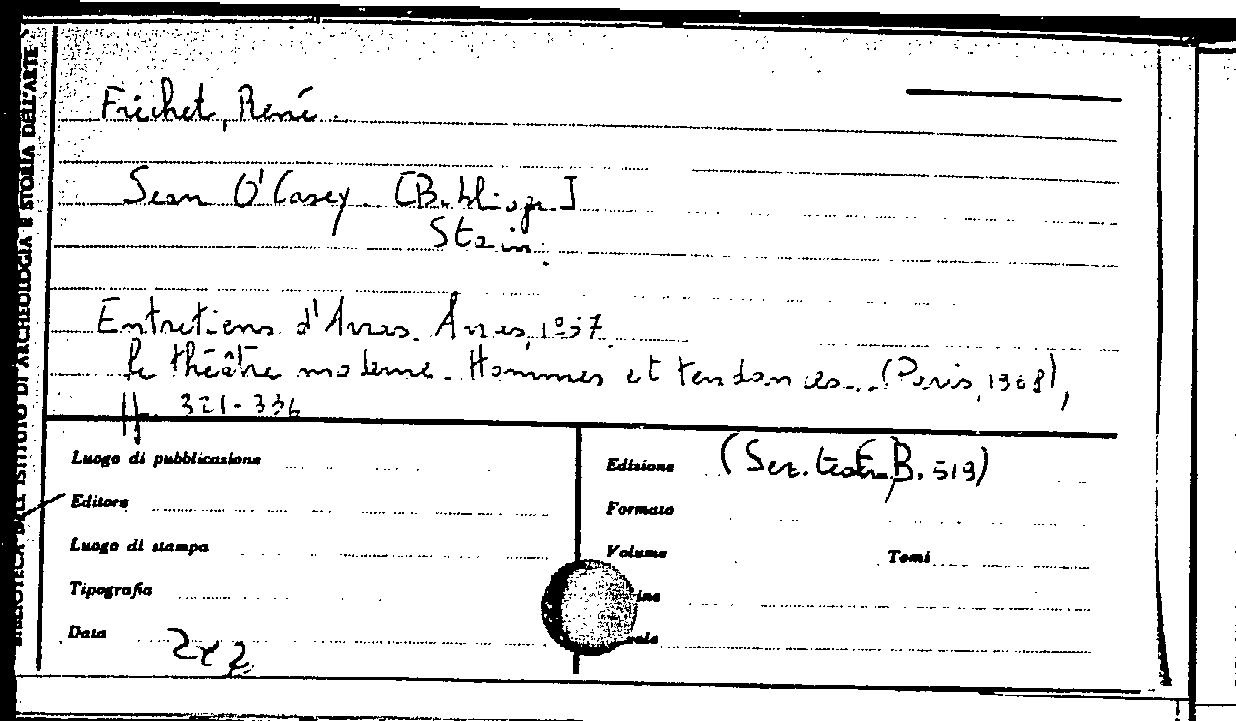 BIBLIOTECA DELL'ISTITUTO DI ARCHEOLOGIA E STORIA DELL'ARTE
Fréchet, René.
Sean O'Casey. [Bibliogr.]
Entretiens d'Arras. Arras, 1957.
Le théâtre moderne. Hommes et tendances... (Paris, 1958),
pp. 321-336
Luogo di pubblicazione
Editore
Luogo di stampa
Tipografia
Data
Edizione (Sez. teatr. B. 519)
Formato
Volume Tomi